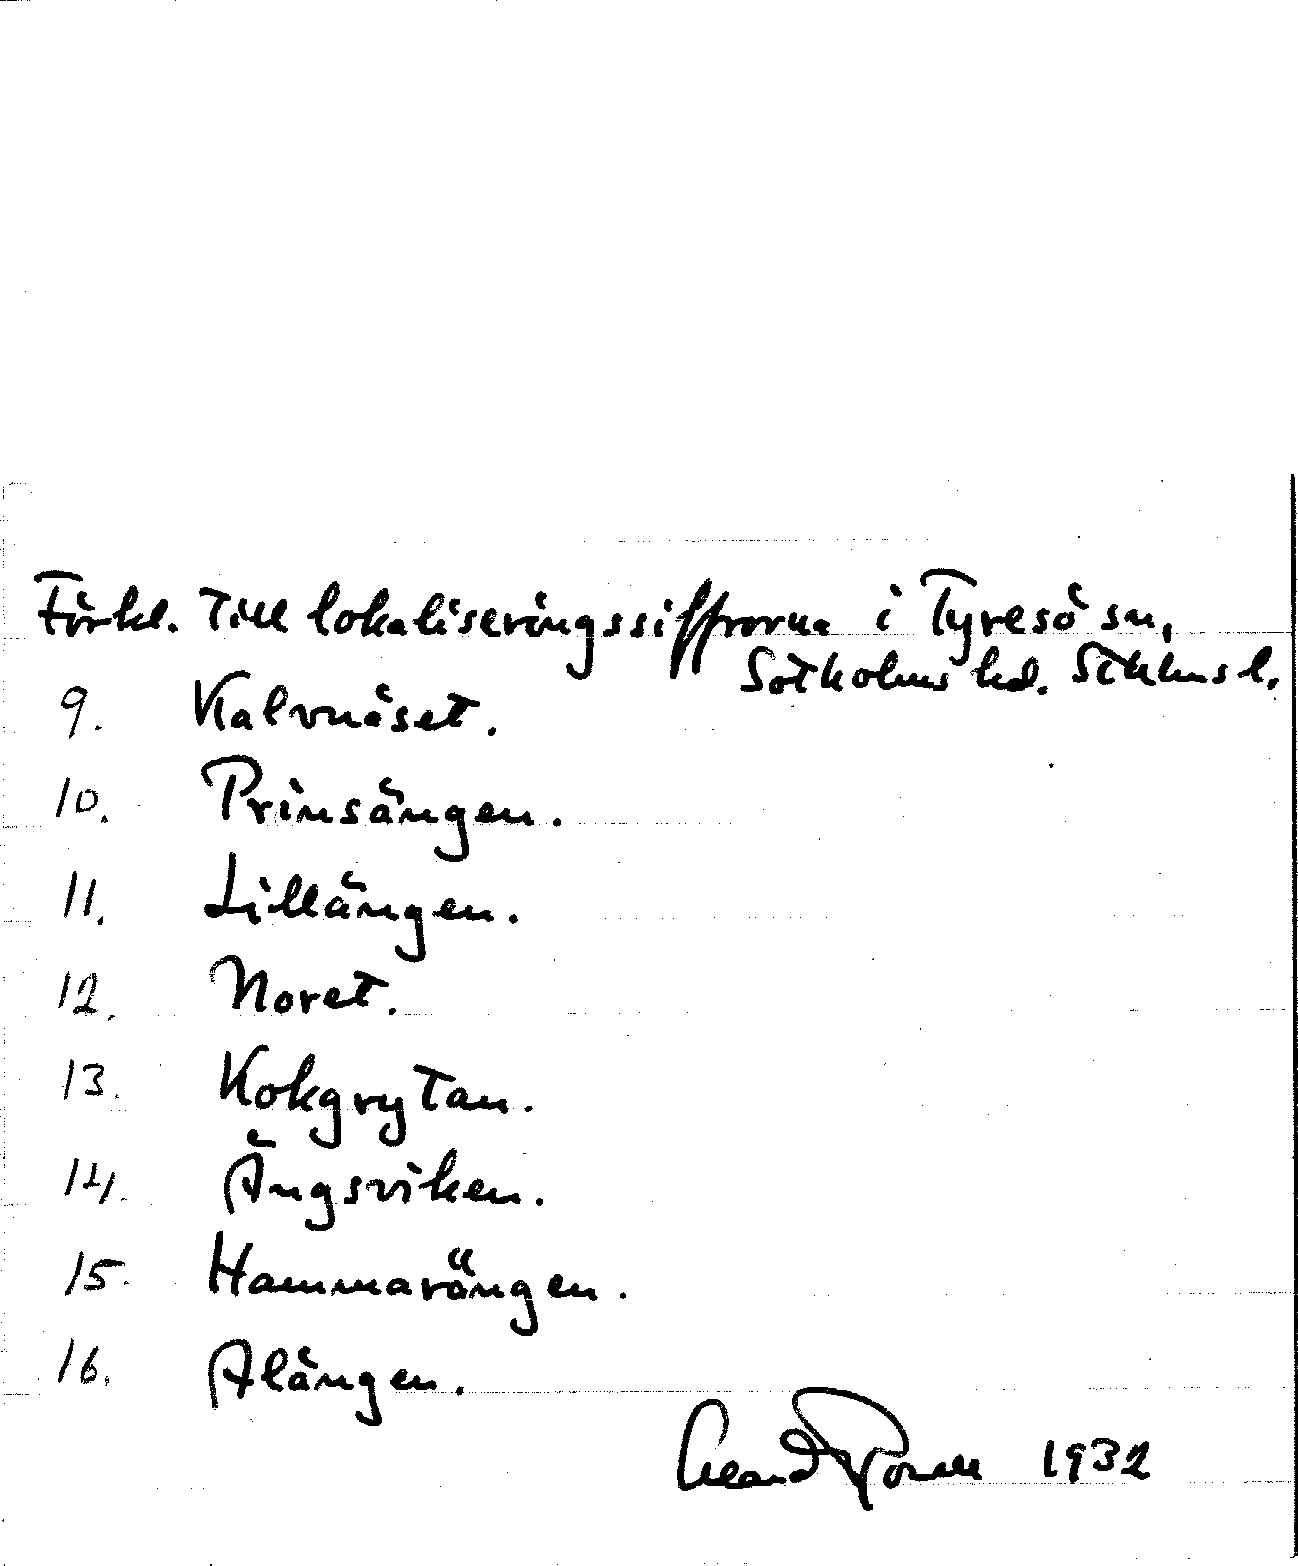 Förkl. till lokaliseringssiffrorna i Tyresö sn,
Sotholms hd. Sthlms l.
9. Kalvnäset.
10. Prinsängen.
11. Lillängen.
12. Noret.
13. Kokgrytan.
14. Ängsviken.
15. Hammarängen.
16. Alängen.
1932